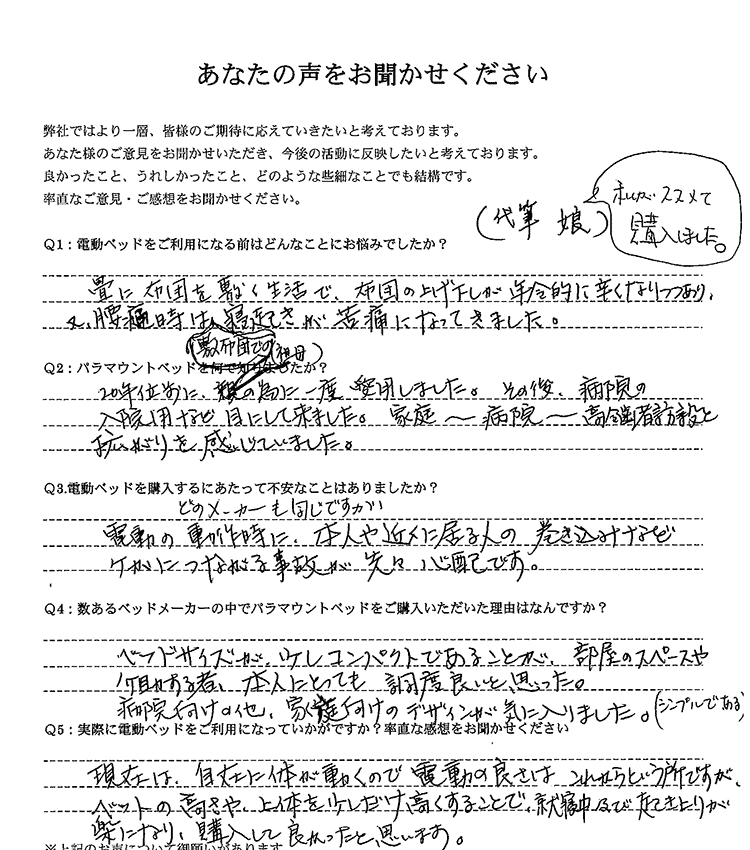 あなたの声をお聞かせください
弊社ではより一層、皆様のご期待に応えていきたいと考えております。
あなた様のご意見をお聞かせいただき、今後の活動に反映したいと考えております。
良かったこと、うれしかったこと、どのような些細なことでも結構です。
率直なご意見・ご感想をお聞かせください。
(代筆 娘)
私がススメて
購入しました。
Q1：電動ベッドをご利用になる前はどんなことにお悩みでしたか？
畳に布団を敷く生活で、布団の上げ下しが年令的に辛くなりつつあり、
又、腰痛時は、寝起きが苦痛になってきました。
(敷布団での)
(祖母)
Q2：パラマウントベッドを何で知りましたか？
20年位前に、の為に一度愛用しました。その後、病院の
入院用など目にして来ました。家庭〜病院〜高令者施設と
拡がりを感じていました。
Q3.電動ベッドを購入するにあたって不安なことはありましたか？
どのメーカーも同じですがい
電動の動作時に、本人や近くに居る人の巻き込みなど
ケガにつながる事故が先々心配です。
Q4：数あるベッドメーカーの中でパラマウントベッドをご購入いただいた理由はなんですか？
ベッドサイズが、少しコンパクトであることが、部屋のスペースや
介助する者、本人にとっても調度良いと思った。
病院向けの他、家庭向けのデザインが気に入りました。(シンプルである)
Q5：実際に電動ベッドをご利用になっていかがですか？率直な感想をお聞かせください
現在は、自在に体が動くので電動の良さはこれからという所ですが、
ベットの高さや、上体を少しだけ高くすることで、就寝中及び起き上りが
楽になり、購入して良かったと思います。
※上記のお声について御願いがあります